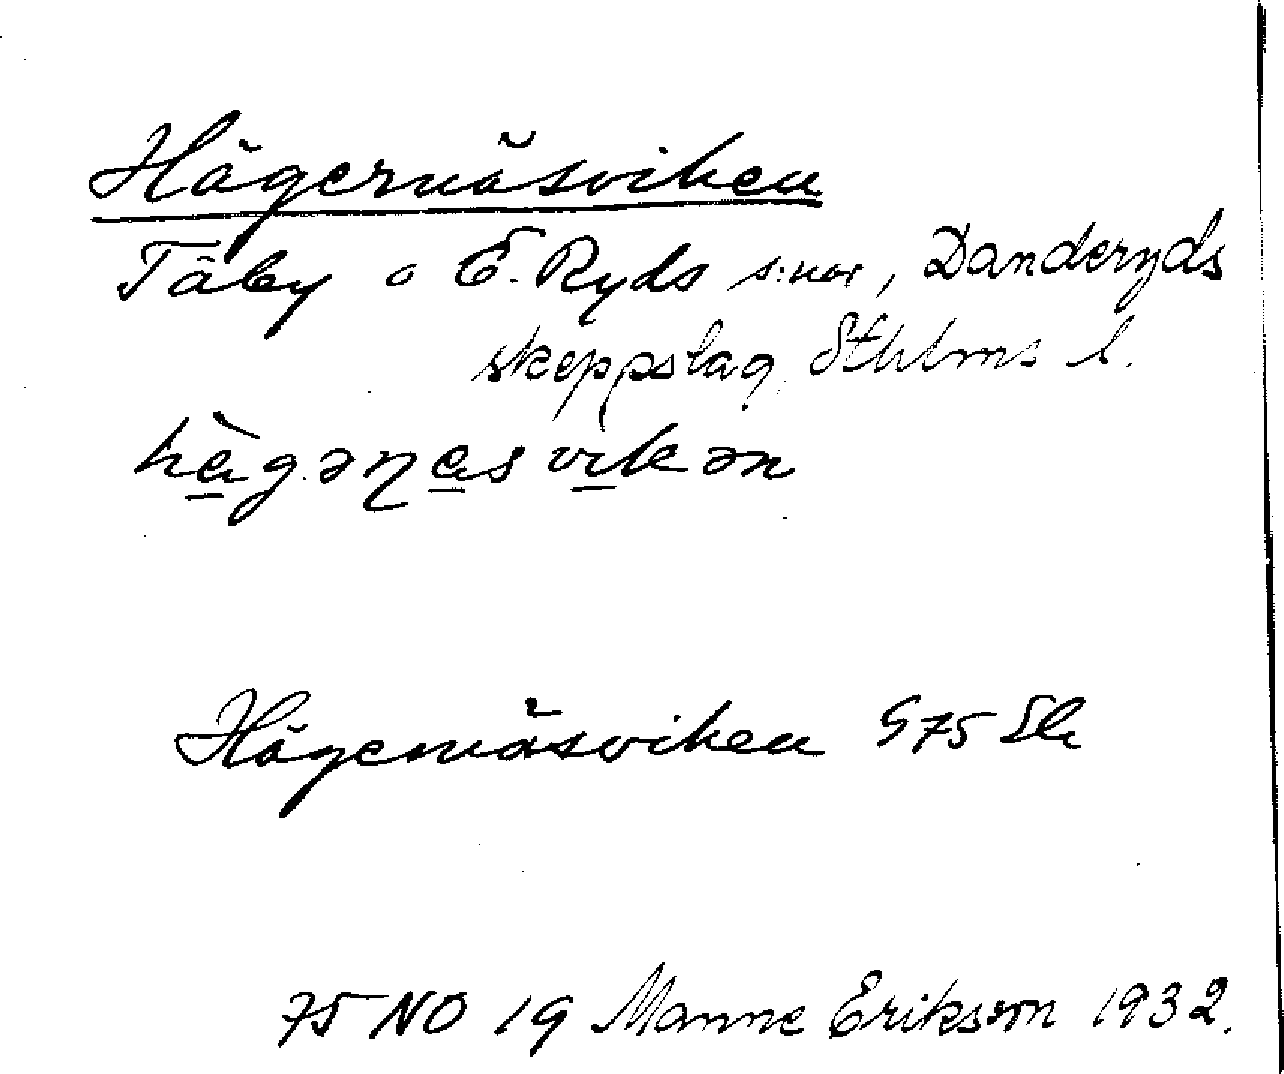 Hägernäsviken
Täby o E. Ryds s:nar, Danderyds
skeppslag, Sthlms l.
hä̀gəɳäsvikən
Hägernäsviken G75 Sk
75 NO 19 Manne Eriksson 1932.